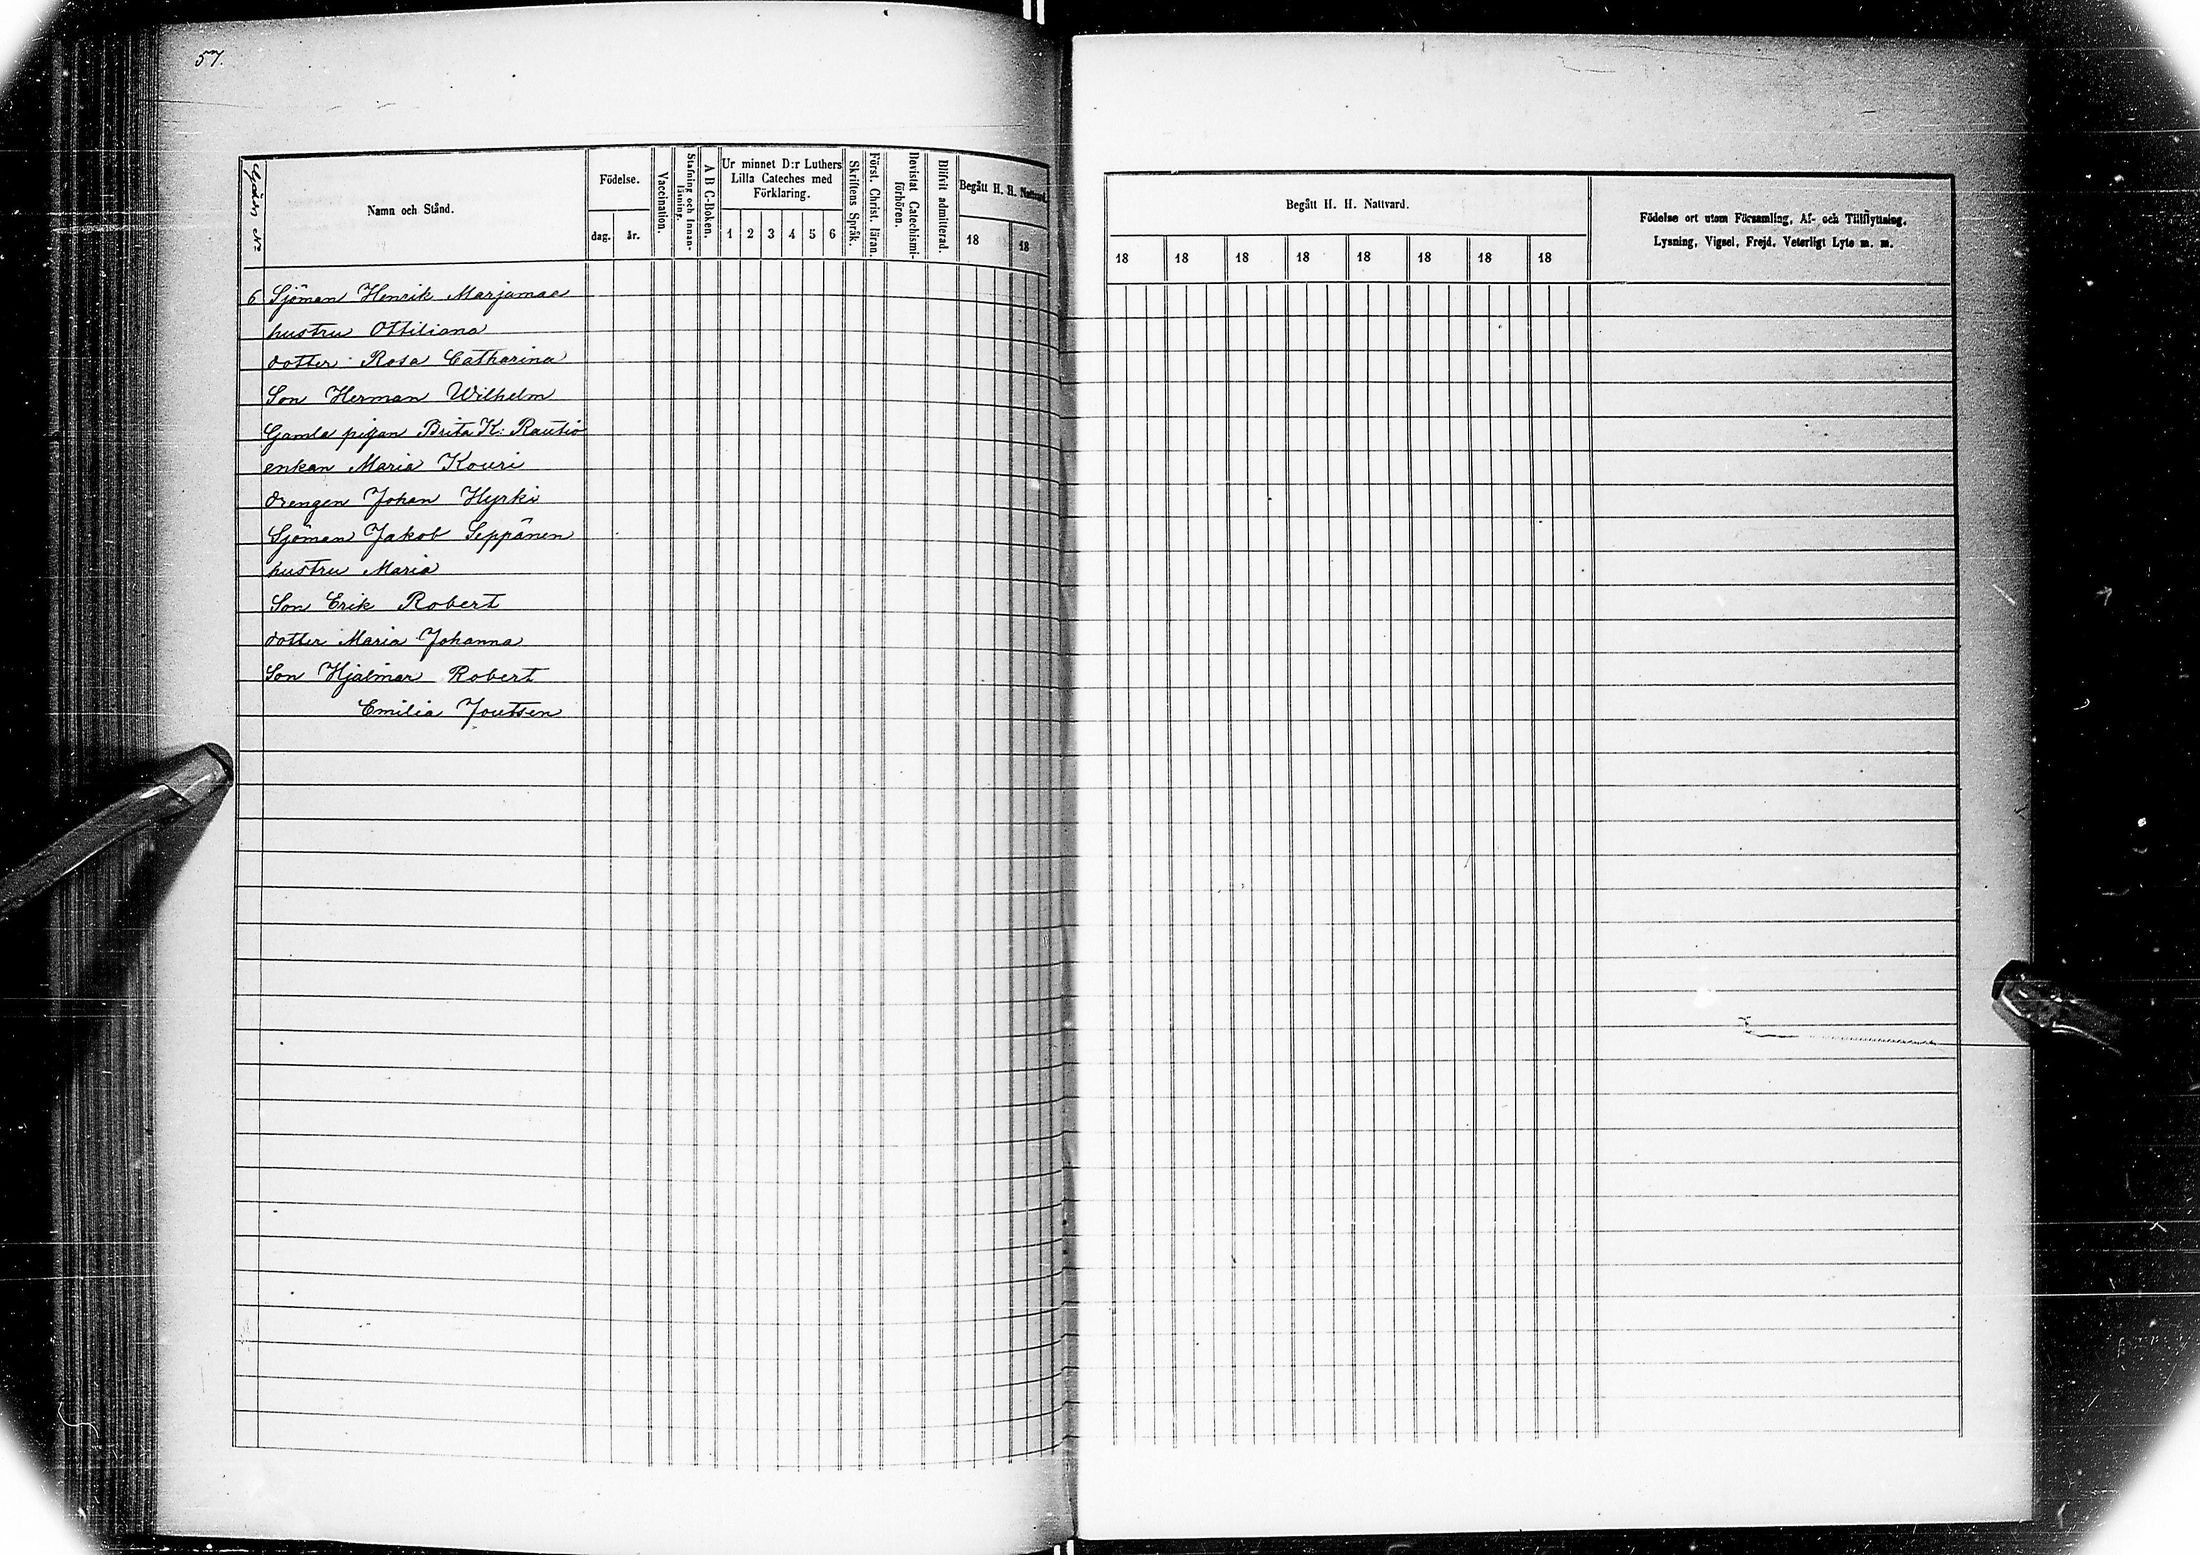 57.
Gårds No
Namn och Stånd.
Födelse.
dag. år.
Vaccination.
Stafning och innan-
läsning.
A B C-Boken.
Ur minnet D:r Luthers
Lilla Cateches med
Förklaring.
1 2 3 4 5 6
Skriftens Språk.
Först. Christ. läran.
Bevistat Catechismi-
förhören.
Blifvit admitterad.
Begått H. H. Nattvard.
18 18
6 Sjöman Henrik Marjamaa
hustru Ottiliana
dotter Rosa Catharina
Son Herman Wilhelm
Gamla pigan Brita K: Rautio
enkan Maria Kouri
drengen Johan Hyrki
Sjöman Jakob Seppänen
hustru Maria
Son Erik Robert
dotter Maria Johanna
Son Hjalmar Robert
Emilia Joutsen
Begått H. H. Nattvard.
18 18 18 18 18 18 18 18
Födelse ort utom Församling, Af- och Tillflyttning.
Lysning, Vigsel, Frejd. Veterligt Lyte m. m.